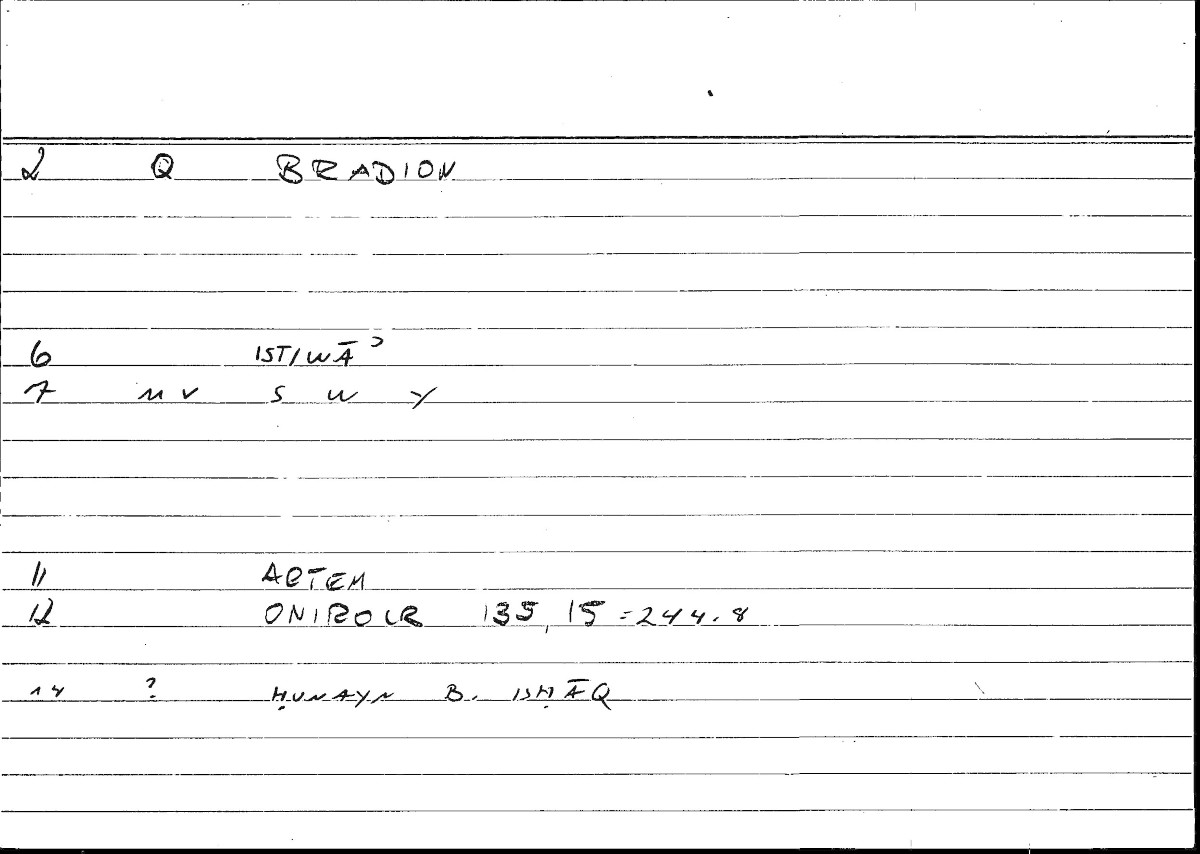 2 Q BRADION
6 IST/WĀʾ
7 NV S W Y
11 ARTEM
12 ONIROCR 135,15=244.8
14 ? ḤUNAYN B. ISḤĀQ